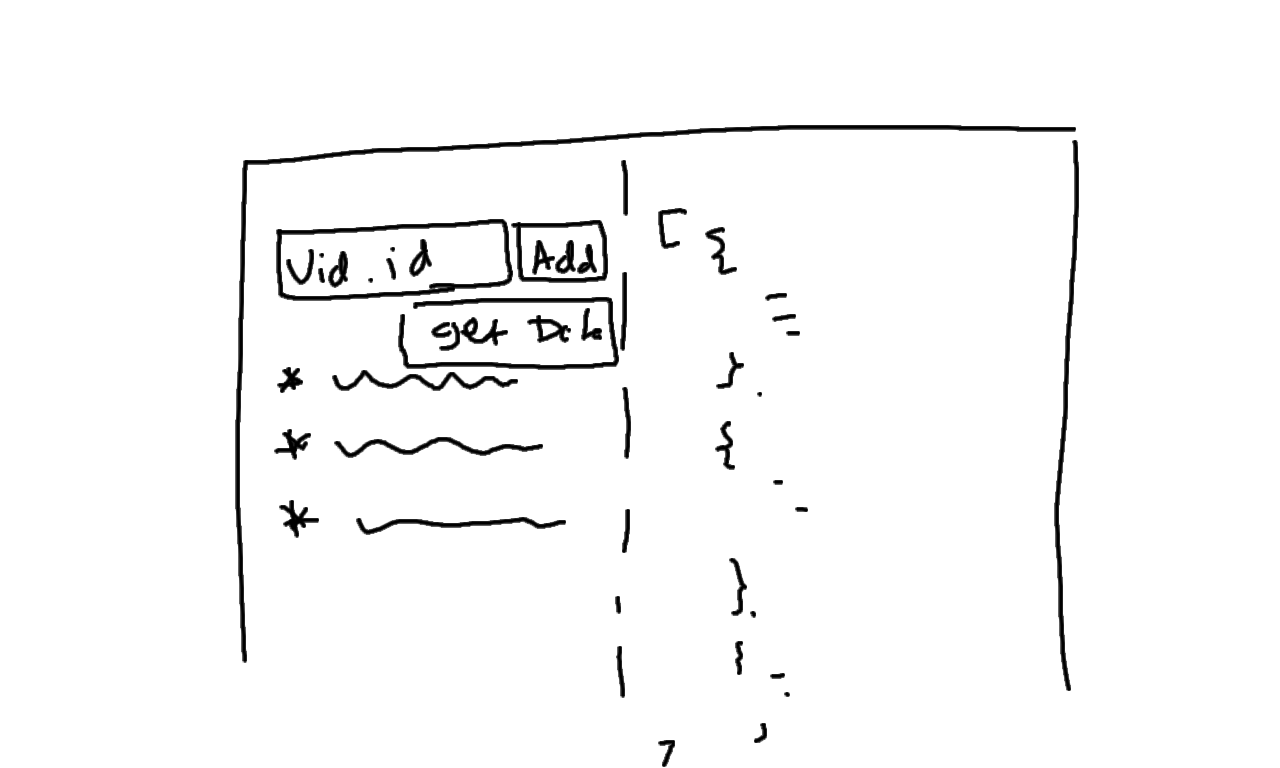 Vid.id
Add
get Data
[ {
}.
{
}.
{
]